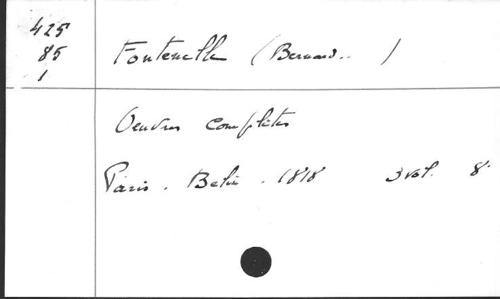 425
85
1
Fontenelle (Bernard.. )
Oeuvres complètes
Paris. Belin. 1818 3 vol. 8°